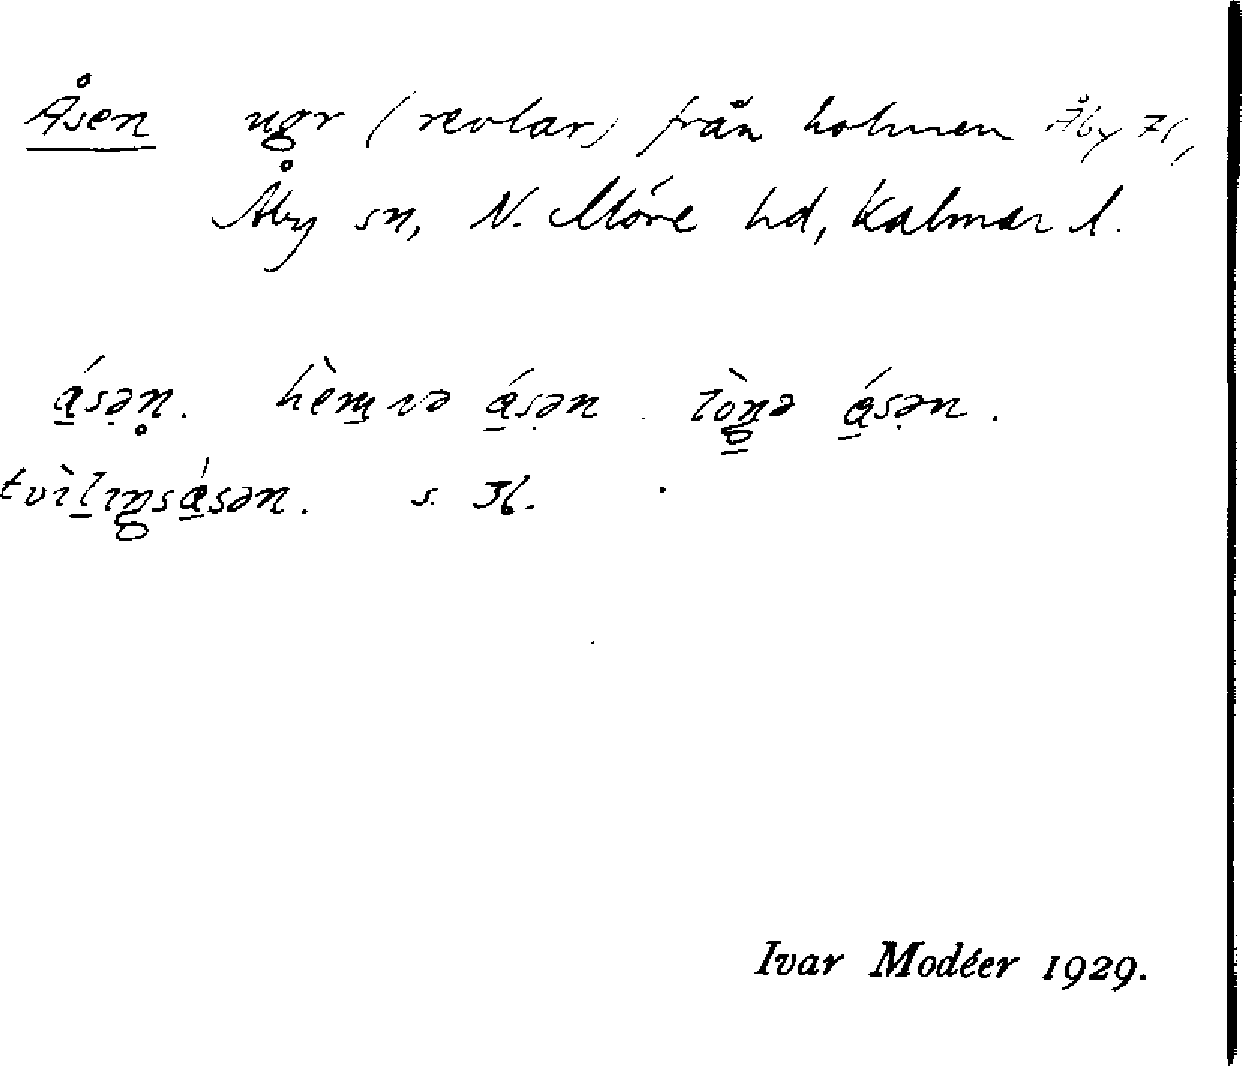 Åsen ugr (revlar) från holmen Åby 71,
Åby sn, N. Möre hd, Kalmar l.
ásən. hèmvə ásən. lòŋə ásən.
tvìlıŋsásən. s. 36.
Ivar Modéer 1929.